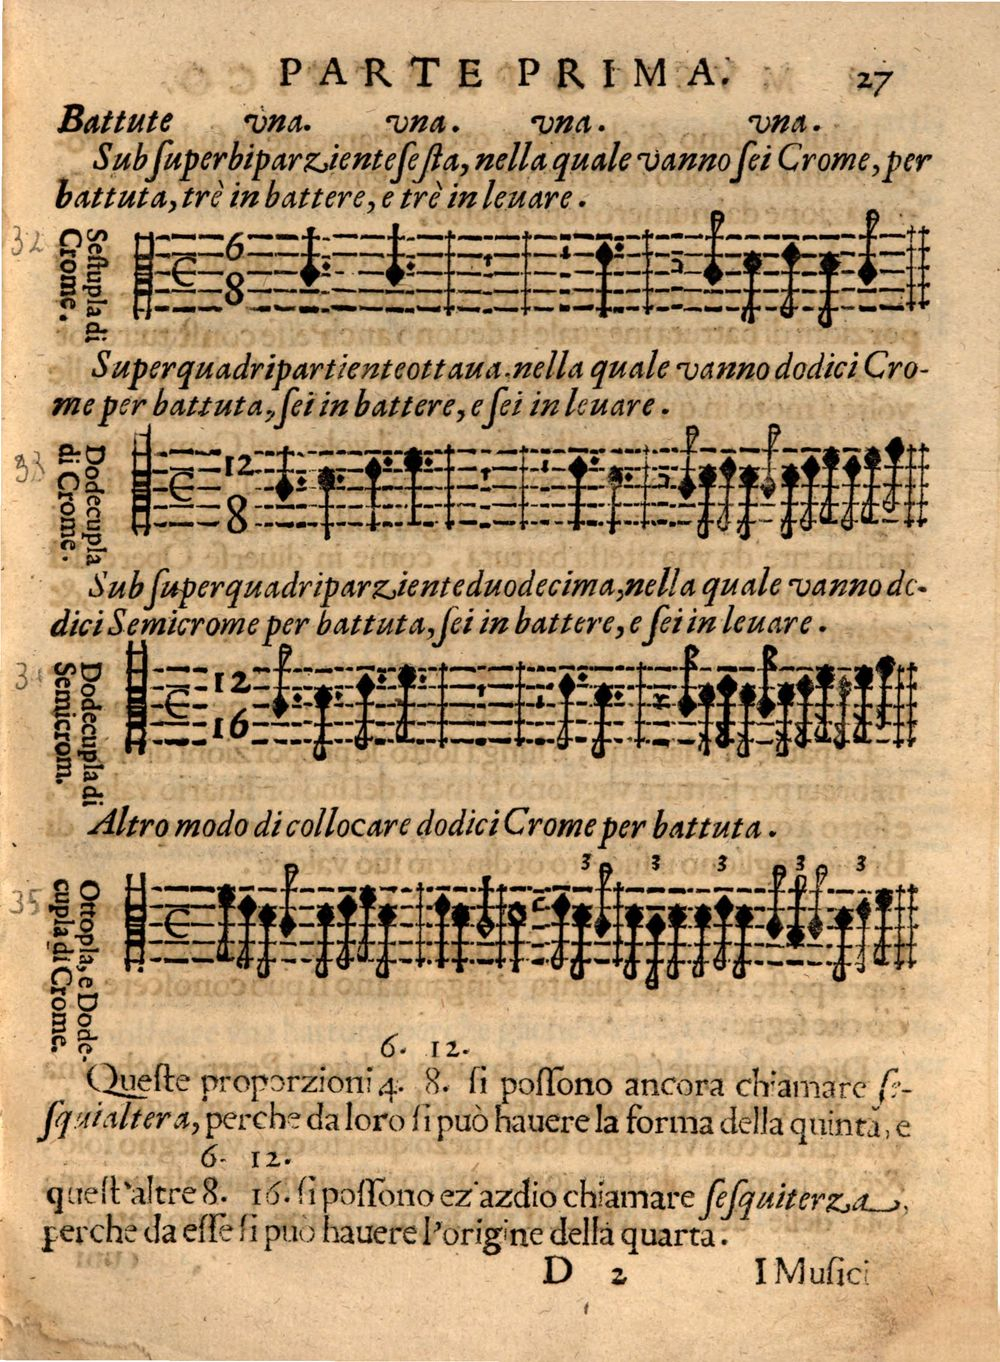 PARTE PRIMA. 27
Battute vna. vna. vna. vna.
Subſuperbiparzienteſeſta, nella quale vanno ſei Crome, per
battuta, trè in battere, e trè in leuare.
32
Seſtupla di
Crome.
6
8
Superquadripartienteottaua. nella quale vanno dodici Cro-
me per battuta, ſei in battere, e ſei in leuare.
33
Dodecupla
di Crome.
12
8
Subſuperquadriparzienteduodecima, nella quale vanno do-
dici Semicrome per battuta, ſei in battere, e ſei in leuare.
Dodecupla di
Semicrom.
12
16
Altro modo di collocare dodici Crome per battuta.
35
Ottopla, e Dode-
cupla di Crome.
3 3 3 3 3
6. 12.
Queſte proporzioni 4. 8. ſi poſſono ancora chiamare ſe-
ſquialtera, perche da loro ſi può hauere la forma della quinta, e
6. 12.
queſt'altre 8. 16. ſi poſſono ez'azdio chiamare ſeſquiterza,
perche da eſſe ſi può hauere l'origine della quarta.
D 2 I Muſici